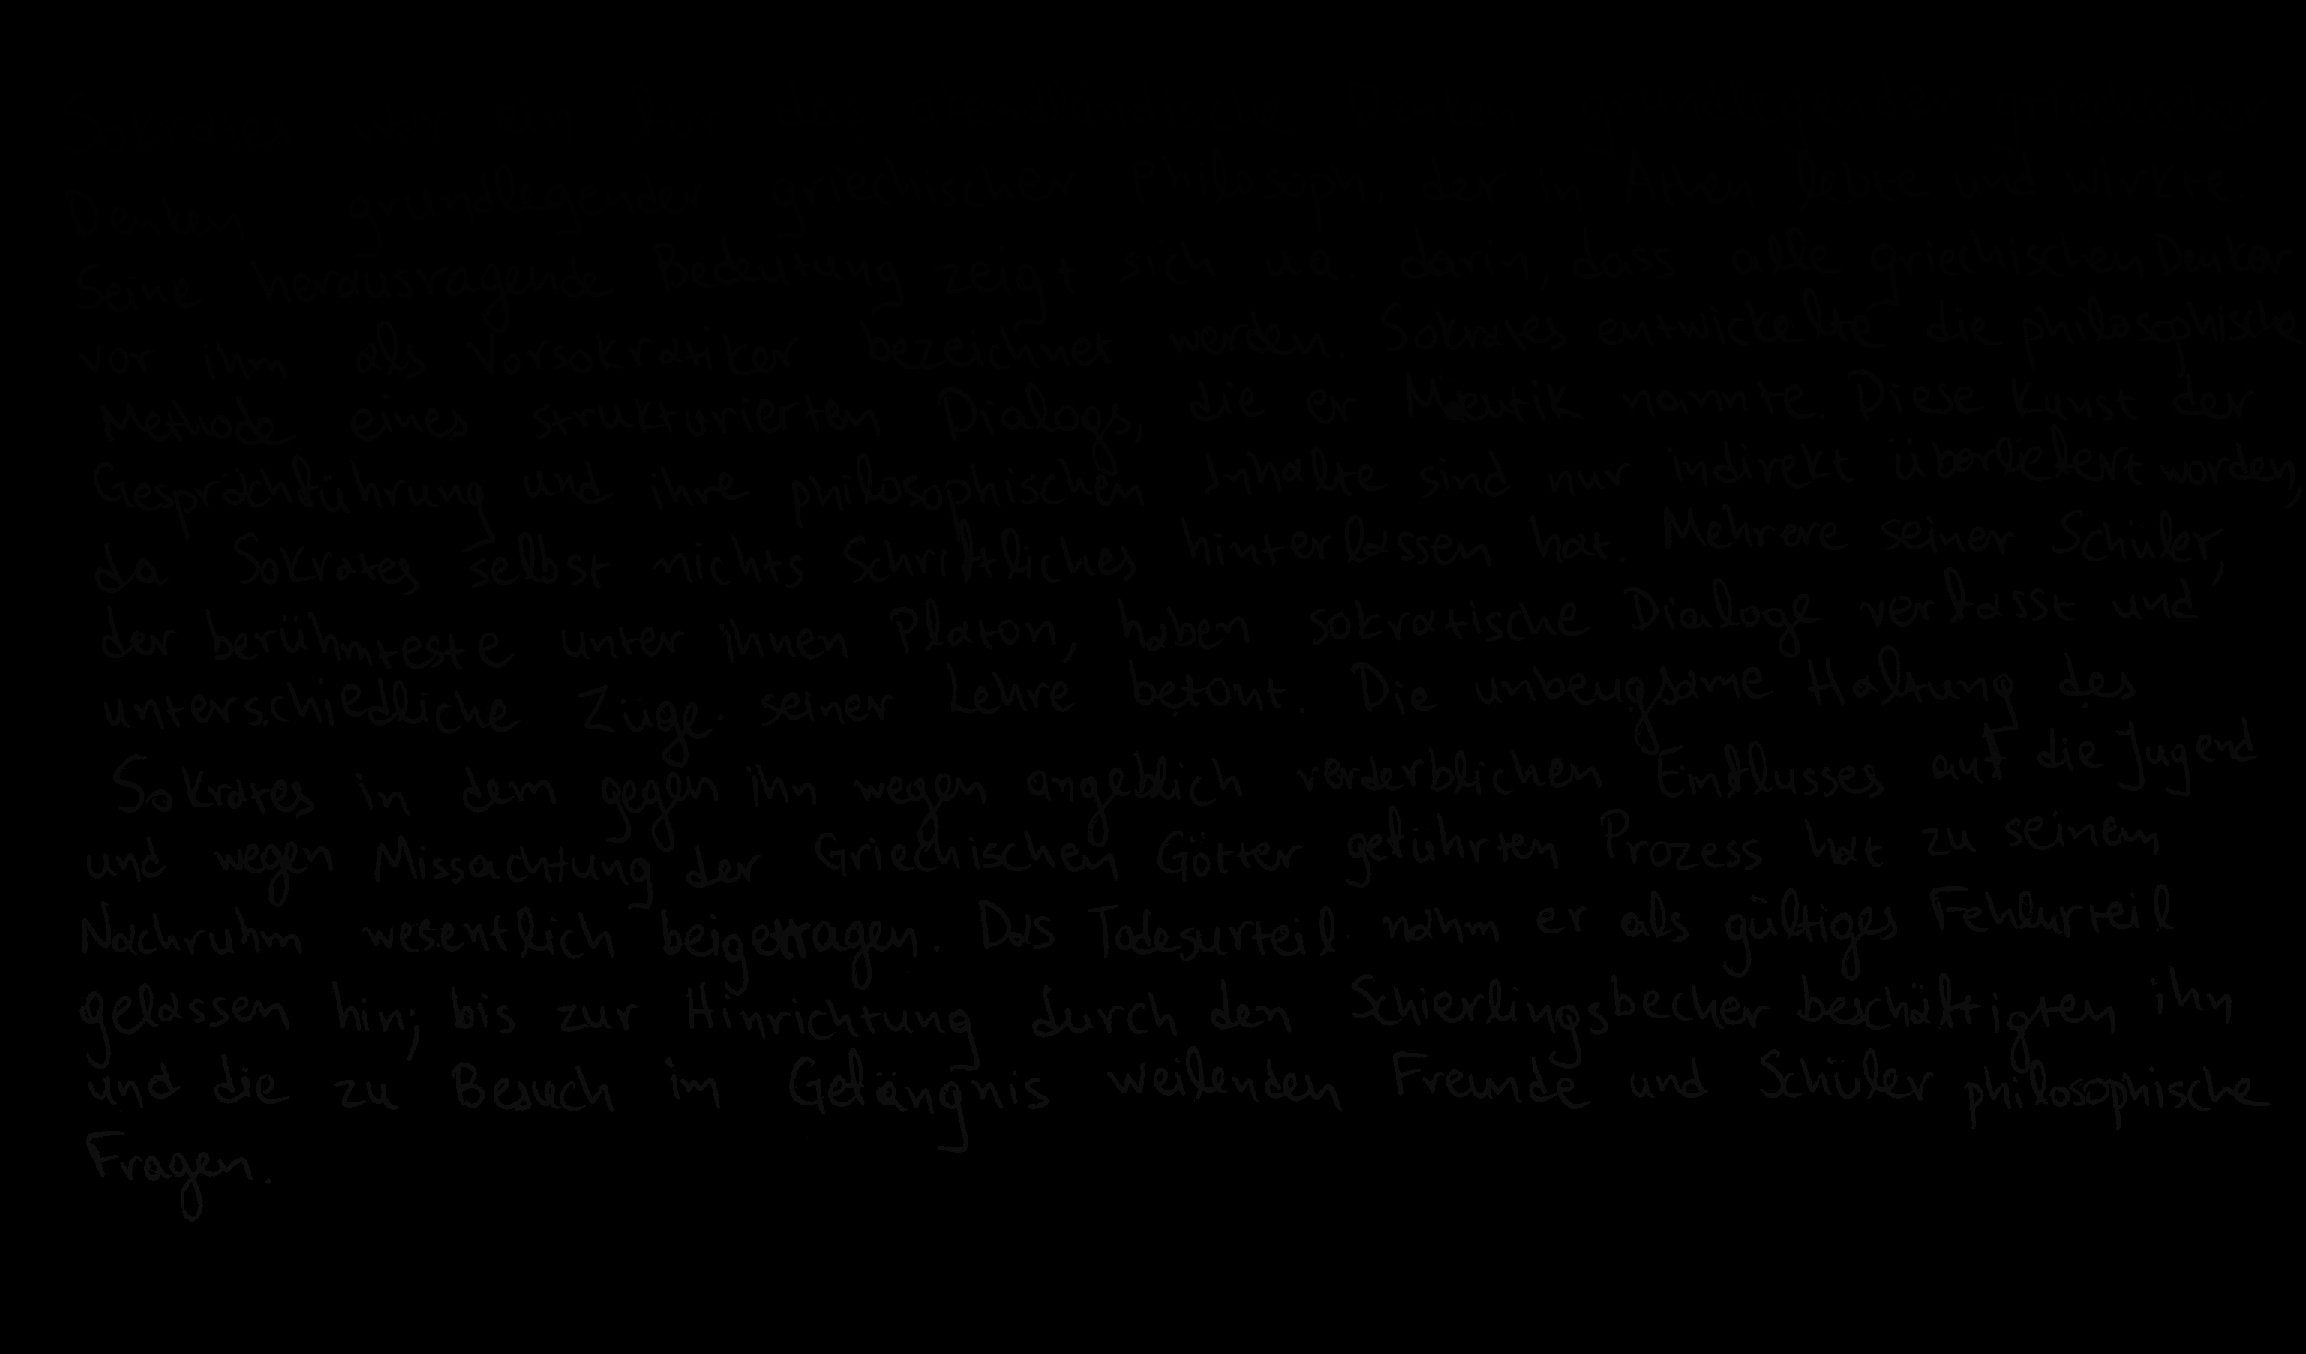 Denken grundlegender griechischer Philosoph, der in Athen lebte und wirkte.
Seine herausragende Bedeutung zeigt sich u.a. darin, dass alle griechischen Denker
vor ihm als Vorsokratiker bezeichnet werden. Sokrates entwickelte die philosophische
Methode eines strukturierten Dialogs, die er Mäeutik nannte. Diese Kunst der
Gesprächführung und ihre philosophischen Inhalte sind nur indirekt überliefert worden,
da Sokrates selbst nichts Schriftliches hinterlassen hat. Mehrere seiner Schüler,
der berühmteste unter ihnen Platon, haben sokratische Dialoge verfasst und
unterschiedliche Züge seiner Lehre betont. Die unbeugsame Haltung des
Sokrates in dem gegen ihn wegen angeblich verderblichen Einflusses auf die Jugend
und wegen Missachtung der Griechischen Götter geführten Prozess hat zu seinem
Nachruhm wesentlich beigetragen. Das Todesurteil nahm er als gültiges Fehlurteil
gelassen hin; bis zur Hinrichtung durch den Schierlingsbecher beschäftigten ihn
und die zu Besuch im Gefängnis weilenden Freunde und Schüler philosophische
Fragen.